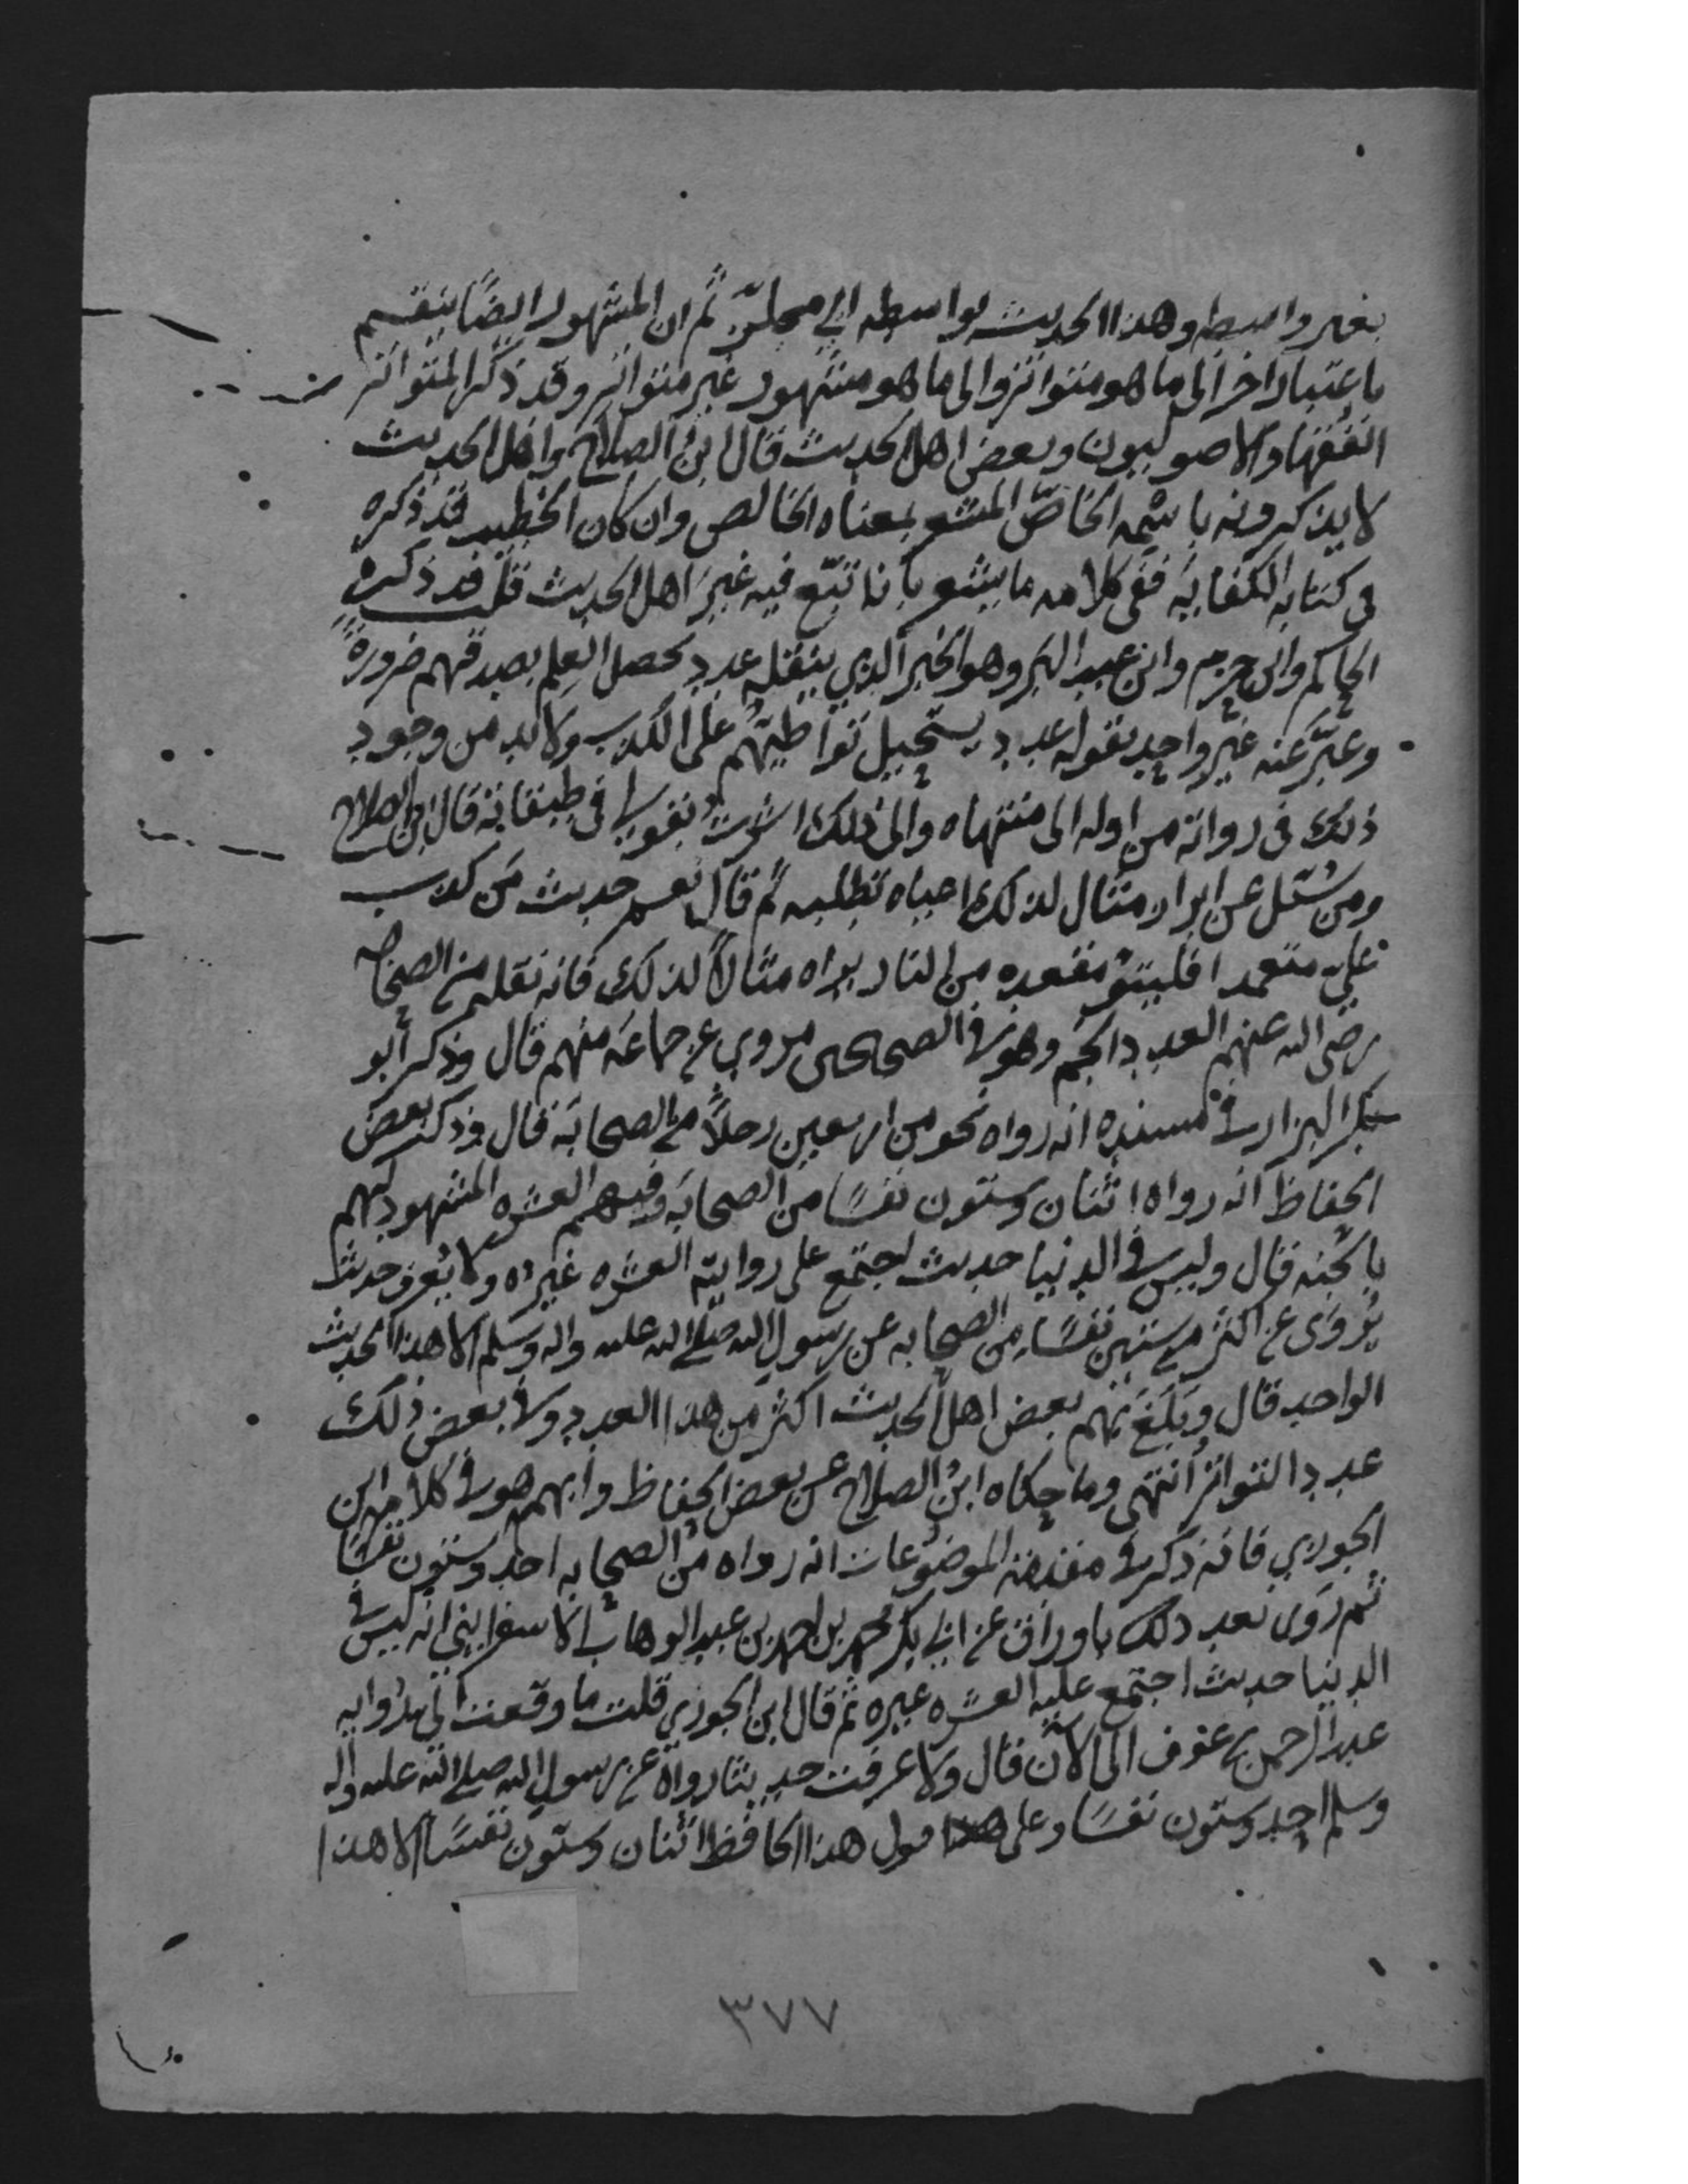 بغير واسطه وهذا الحديث بواسطه ابي مجلز ثم ان المشهور ايضًا ينقسم
باعتبار اخر الى ما هو متواتر والى ما هو مشهور غير متواتر وقد ذكر المتواتر
الفقها والاصوليون وبعض اهل الحديث قال ابن الصلاح واهل الحديث
لا يذكرونه باسمه الخاصّ المشعر بمعناه الخاص وان كان الخطيب قد ذكره
في كتابه الكفاية ففى كلامه ما يشعر بانه اتبع فيه غير اهل الحديث قلت قد ذكره
الحاكم وابن حزم وابن عبد البر وهو الخبر الذي ينقله عدد يحصل العلم بصدقهم ضرورةً
وعبّر عنه غير واحد بقوله عدد يستحيل تواطيهم على الكذب ولا بد من وجود
ذلك فى رواته من اوله الى منتهاه والى ذلك اشرت بقولي في طبقاته قال ابن الصلاح
ومن سُئل عن ابراز مثال لذلك اعياه تطلبه ثم قال نعم حديث مَن كذب
عليّ متعمدا فليتبوّ مقعده من النار نراه مثالاً لذلك فانه نقله من الصحابه
رضي الله عنهم العدد الجم وهو في الصحيحين مروي عن جماعه منهم قال وذكر أبو
بكر البزار في مسنده انه رواه نحو من اربعين رجلاً من الصحابَه قال وذكر بعض
الحفاظ انه رواه اثنان وستون نفسًا من الصحابه وفيهم العشره المشهود لهم
بالجنه قال وليس في الدنيا حديث اجتمع على روايته العشره غيره ولا يُعرف حديث
يُروى عن اكثر من ستين نفسًا من الصحابه عن رسول الله صلى الله عليه واله وسلم الا هذا الحديث
الواحد قال وبَلَغ بهم بعض اهل الحديث اكثر من هذا العدد ولا بعض ذلك
عدد التواتر انتهى وما حكاه ابن الصلاح عن بعض الحفاظ وابهمه هو في كلام ابن
الجوزي فانه ذكر في مقدمة الموضوعات انه رواه من الصحابه احد وستون نفسًا
ثم روى بعد ذلك باوراق عن ابي بكر محمد بن احمد بن عبد الوهاب الاسفرايني انه ليس في
الدنيا حديث اجتمع عليه العشره غيره ثم قال ابن الجوزي قلت ما وقعت الي روايه
عبد الرحمن بن عوف الى الآن قال ولا عرفت حديثا رواه عن رسول الله صلى الله عليه واله
وسلم احد وستون نفسًا وعلى قول هذا الحافظ اثنان وستون نفسًا الا هذا
٣٧٧